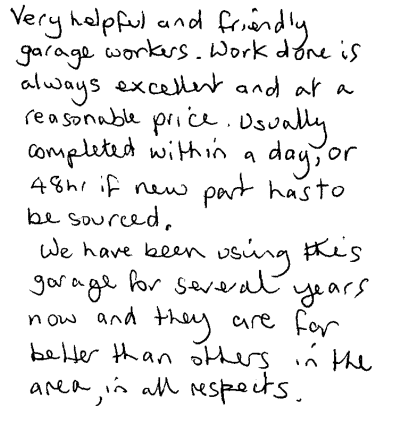 Very helpful and friendly
garage workers. Work done is
always excellent and at a
reasonable price. Usually
completed within a day, or
48hr if new part has to
be sourced.
We have been using this
garage for several years
now and they are far
better than others in the
area, in all respects.